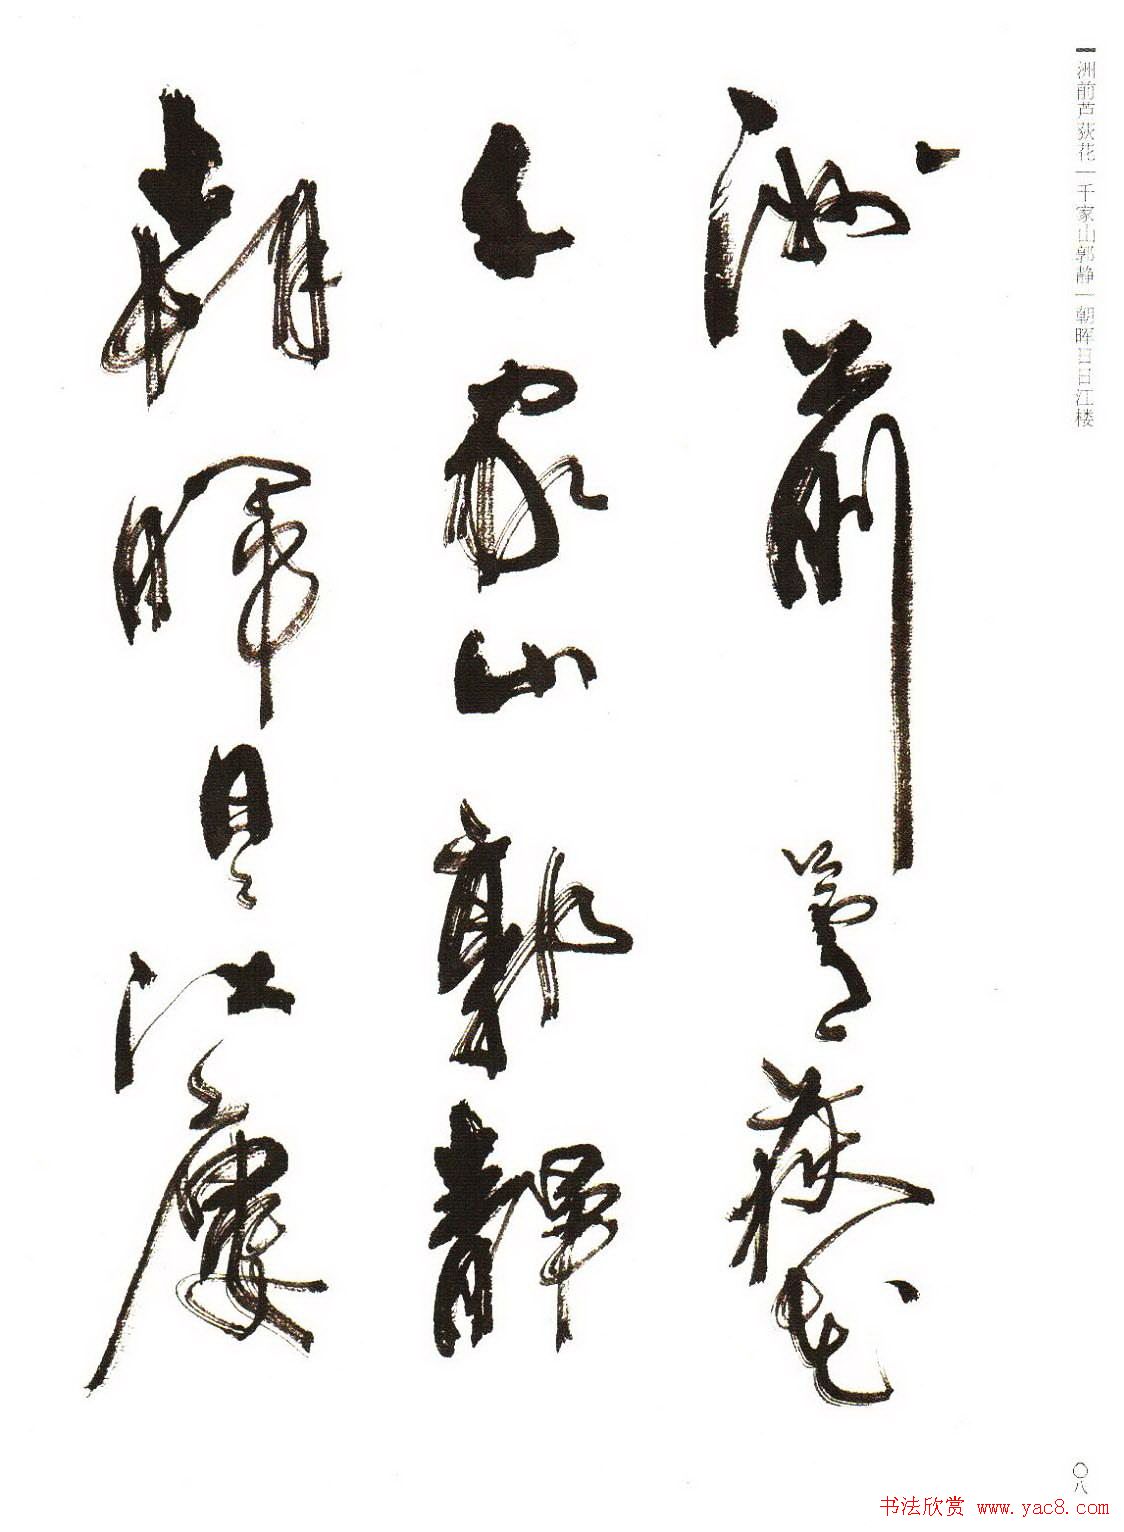 洲前芦荻花|千家山郭静|朝晖日日江楼
洲前蘆荻花
千家山郭靜
朝暉日日江樓
〇八
书法欣赏 www.yac8.com